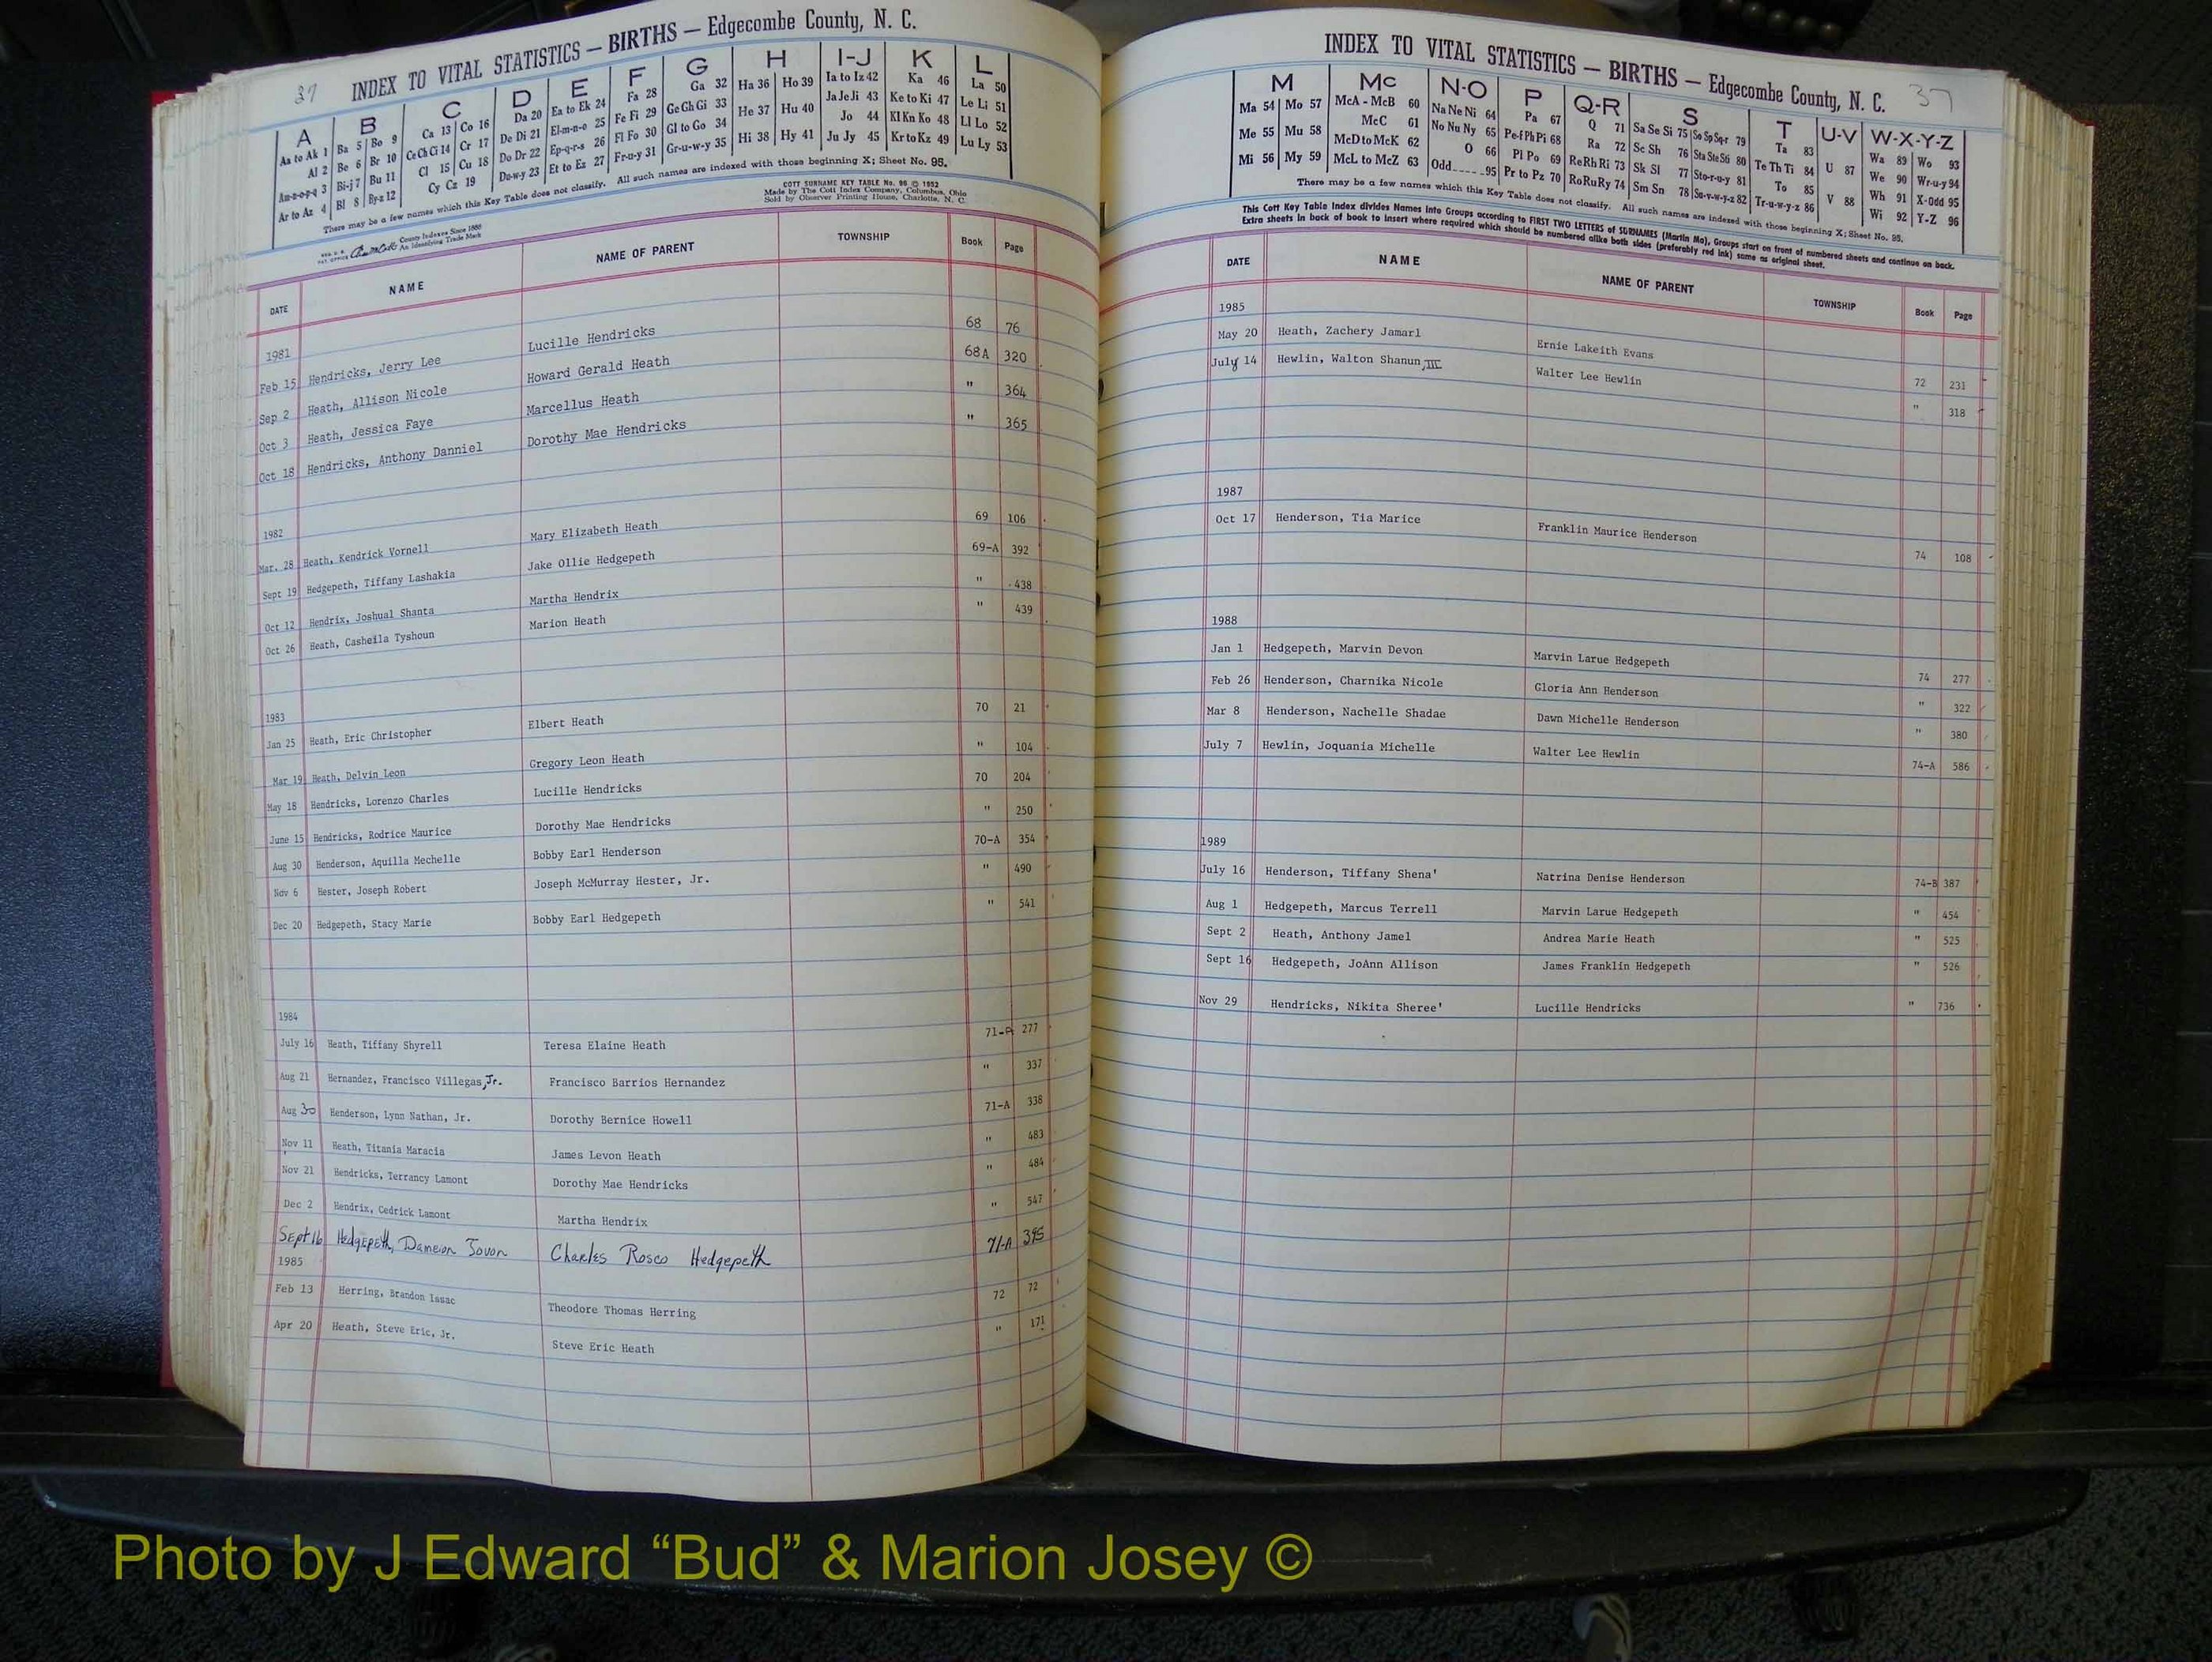 37
INDEX TO VITAL STATISTICS — BIRTHS — Edgecombe County, N. C.
A B C D E F G H I-J K L
Aa to Ak 1 Ba 5 Bo 9 Ca 13 Co 16 Da 20 Ea to Ek 24 Fa 28 Ga 32 Ha 36 Ho 39 Ia to Iz 42 Ka 46 La 50
Al 2 Be 6 Br 10 Ce Ch Ci 14 Cr 17 De Di 21 El-m-n-o 25 Fe Fi 29 Ge Gh Gi 33 He 37 Hu 40 Ja Je Ji 43 Ke to Ki 47 Le Li 51
Am-n-o-p-q 3 Bi-j 7 Bu 11 Cl 15 Cu 18 Do Dr 22 Ep-q-r-s 26 Fl Fo 30 Gl to Go 34 Hi 38 Hy 41 Jo 44 Kl Kn Ko 48 Ll Lo 52
Ar to Az 4 Bl 8 By-z 12 Cy Cz 19 Du-w-y 23 Et to Ez 27 Fr-u-y 31 Gr-u-w-y 35 Ju Jy 45 Kr to Kz 49 Lu Ly 53
There may be a few names which this Key Table does not classify. All such names are indexed with those beginning X; Sheet No. 95.
COTT SURNAME KEY TABLE No. 96 © 1952
Made by The Cott Index Company, Columbus, Ohio
Sold by Observer Printing House, Charlotte, N. C.
County Indexes Since 1888
An Identifying Trade Mark
DATE NAME NAME OF PARENT TOWNSHIP Book Page
1981
Feb 15 Hendricks, Jerry Lee Lucille Hendricks 68 76
Sep 2 Heath, Allison Nicole Howard Gerald Heath 68A 320
Oct 3 Heath, Jessica Faye Marcellus Heath " 364
Oct 18 Hendricks, Anthony Danniel Dorothy Mae Hendricks " 365
1982
Mar. 28 Heath, Kendrick Vornell Mary Elizabeth Heath 69 106
Sept 19 Hedgepeth, Tiffany Lashakia Jake Ollie Hedgepeth 69-A 392
Oct 12 Hendrix, Joshual Shanta Martha Hendrix " 438
Oct 26 Heath, Casheila Tyshoun Marion Heath " 439
1983
Jan 25 Heath, Eric Christopher Elbert Heath 70 21
Mar 19 Heath, Delvin Leon Gregory Leon Heath " 104
May 18 Hendricks, Lorenzo Charles Lucille Hendricks 70 204
June 15 Hendricks, Rodrice Maurice Dorothy Mae Hendricks " 250
Aug 30 Henderson, Aquilla Mechelle Bobby Earl Henderson 70-A 354
Nov 6 Hester, Joseph Robert Joseph McMurray Hester, Jr. " 490
Dec 20 Hedgepeth, Stacy Marie Bobby Earl Hedgepeth " 541
1984
July 16 Heath, Tiffany Shyrell Teresa Elaine Heath 71-A 277
Aug 21 Hernandez, Francisco Villegas, Jr. Francisco Barrios Hernandez " 337
Aug 30 Henderson, Lynn Nathan, Jr. Dorothy Bernice Howell 71-A 338
Nov 11 Heath, Titania Maracia James Levon Heath " 483
Nov 21 Hendricks, Terrancy Lamont Dorothy Mae Hendricks " 484
Dec 2 Hendrix, Cedrick Lamont Martha Hendrix " 547
Sept 16 Hedgepeth, Dameion Jovon Charles Rosco Hedgepeth 71-A 395
1985
Feb 13 Herring, Brandon Isaac Theodore Thomas Herring 72 72
Apr 20 Heath, Steve Eric, Jr. Steve Eric Heath " 171
INDEX TO VITAL STATISTICS — BIRTHS — Edgecombe County, N. C. 37
M Mc N-O P Q-R S T U-V W-X-Y-Z
Ma 54 Mo 57 McA - McB 60 Na Ne Ni 64 Pa 67 Q 71 Sa Se Si 75 So Sp Sq-r 79 Ta 83 U 87 Wa 89 Wo 93
Me 55 Mu 58 McC 61 No Nu Ny 65 Pe-f Ph Pi 68 Ra 72 Sc Sh 76 Sta Ste Sti 80 Te Th Ti 84 V 88 We 90 Wr-u-y 94
Mi 56 My 59 McD to McK 62 O 66 Pl Po 69 Re Rh Ri 73 Sk Sl 77 Sto-r-u-y 81 To 85 Wh 91 X-Odd 95
McL to McZ 63 Odd 95 Pr to Pz 70 Ro Ru Ry 74 Sm Sn 78 Su-v-w-y-z 82 Tr-u-w-y-z 86 Wi 92 Y-Z 96
There may be a few names which this Key Table does not classify. All such names are indexed with those beginning X; Sheet No. 95.
This Cott Key Table Index divides Names into Groups according to FIRST TWO LETTERS of SURNAMES (Martin Ma), Groups start on front of numbered sheets and continue on back.
Extra sheets in back of book to insert where required which should be numbered alike both sides (preferably red ink) same as original sheet.
DATE NAME NAME OF PARENT TOWNSHIP Book Page
1985
May 20 Heath, Zachery Jamarl Ernie Lakeith Evans 72 231
July 14 Hewlin, Walton Shanun, III Walter Lee Hewlin " 318
1987
Oct 17 Henderson, Tia Marice Franklin Maurice Henderson 74 108
1988
Jan 1 Hedgepeth, Marvin Devon Marvin Larue Hedgepeth 74 277
Feb 26 Henderson, Charnika Nicole Gloria Ann Henderson " 322
Mar 8 Henderson, Nachelle Shadae Dawn Michelle Henderson " 380
July 7 Hewlin, Joquania Michelle Walter Lee Hewlin 74-A 586
1989
July 16 Henderson, Tiffany Shena' Natrina Denise Henderson 74-B 387
Aug 1 Hedgepeth, Marcus Terrell Marvin Larue Hedgepeth " 454
Sept 2 Heath, Anthony Jamel Andrea Marie Heath " 525
Sept 16 Hedgepeth, JoAnn Allison James Franklin Hedgepeth " 526
Nov 29 Hendricks, Nikita Sheree' Lucille Hendricks " 736
Photo by J Edward “Bud” & Marion Josey ©